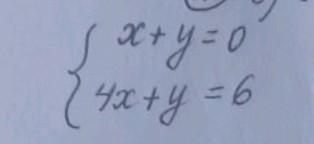 x + y = 0
4x + y = 6